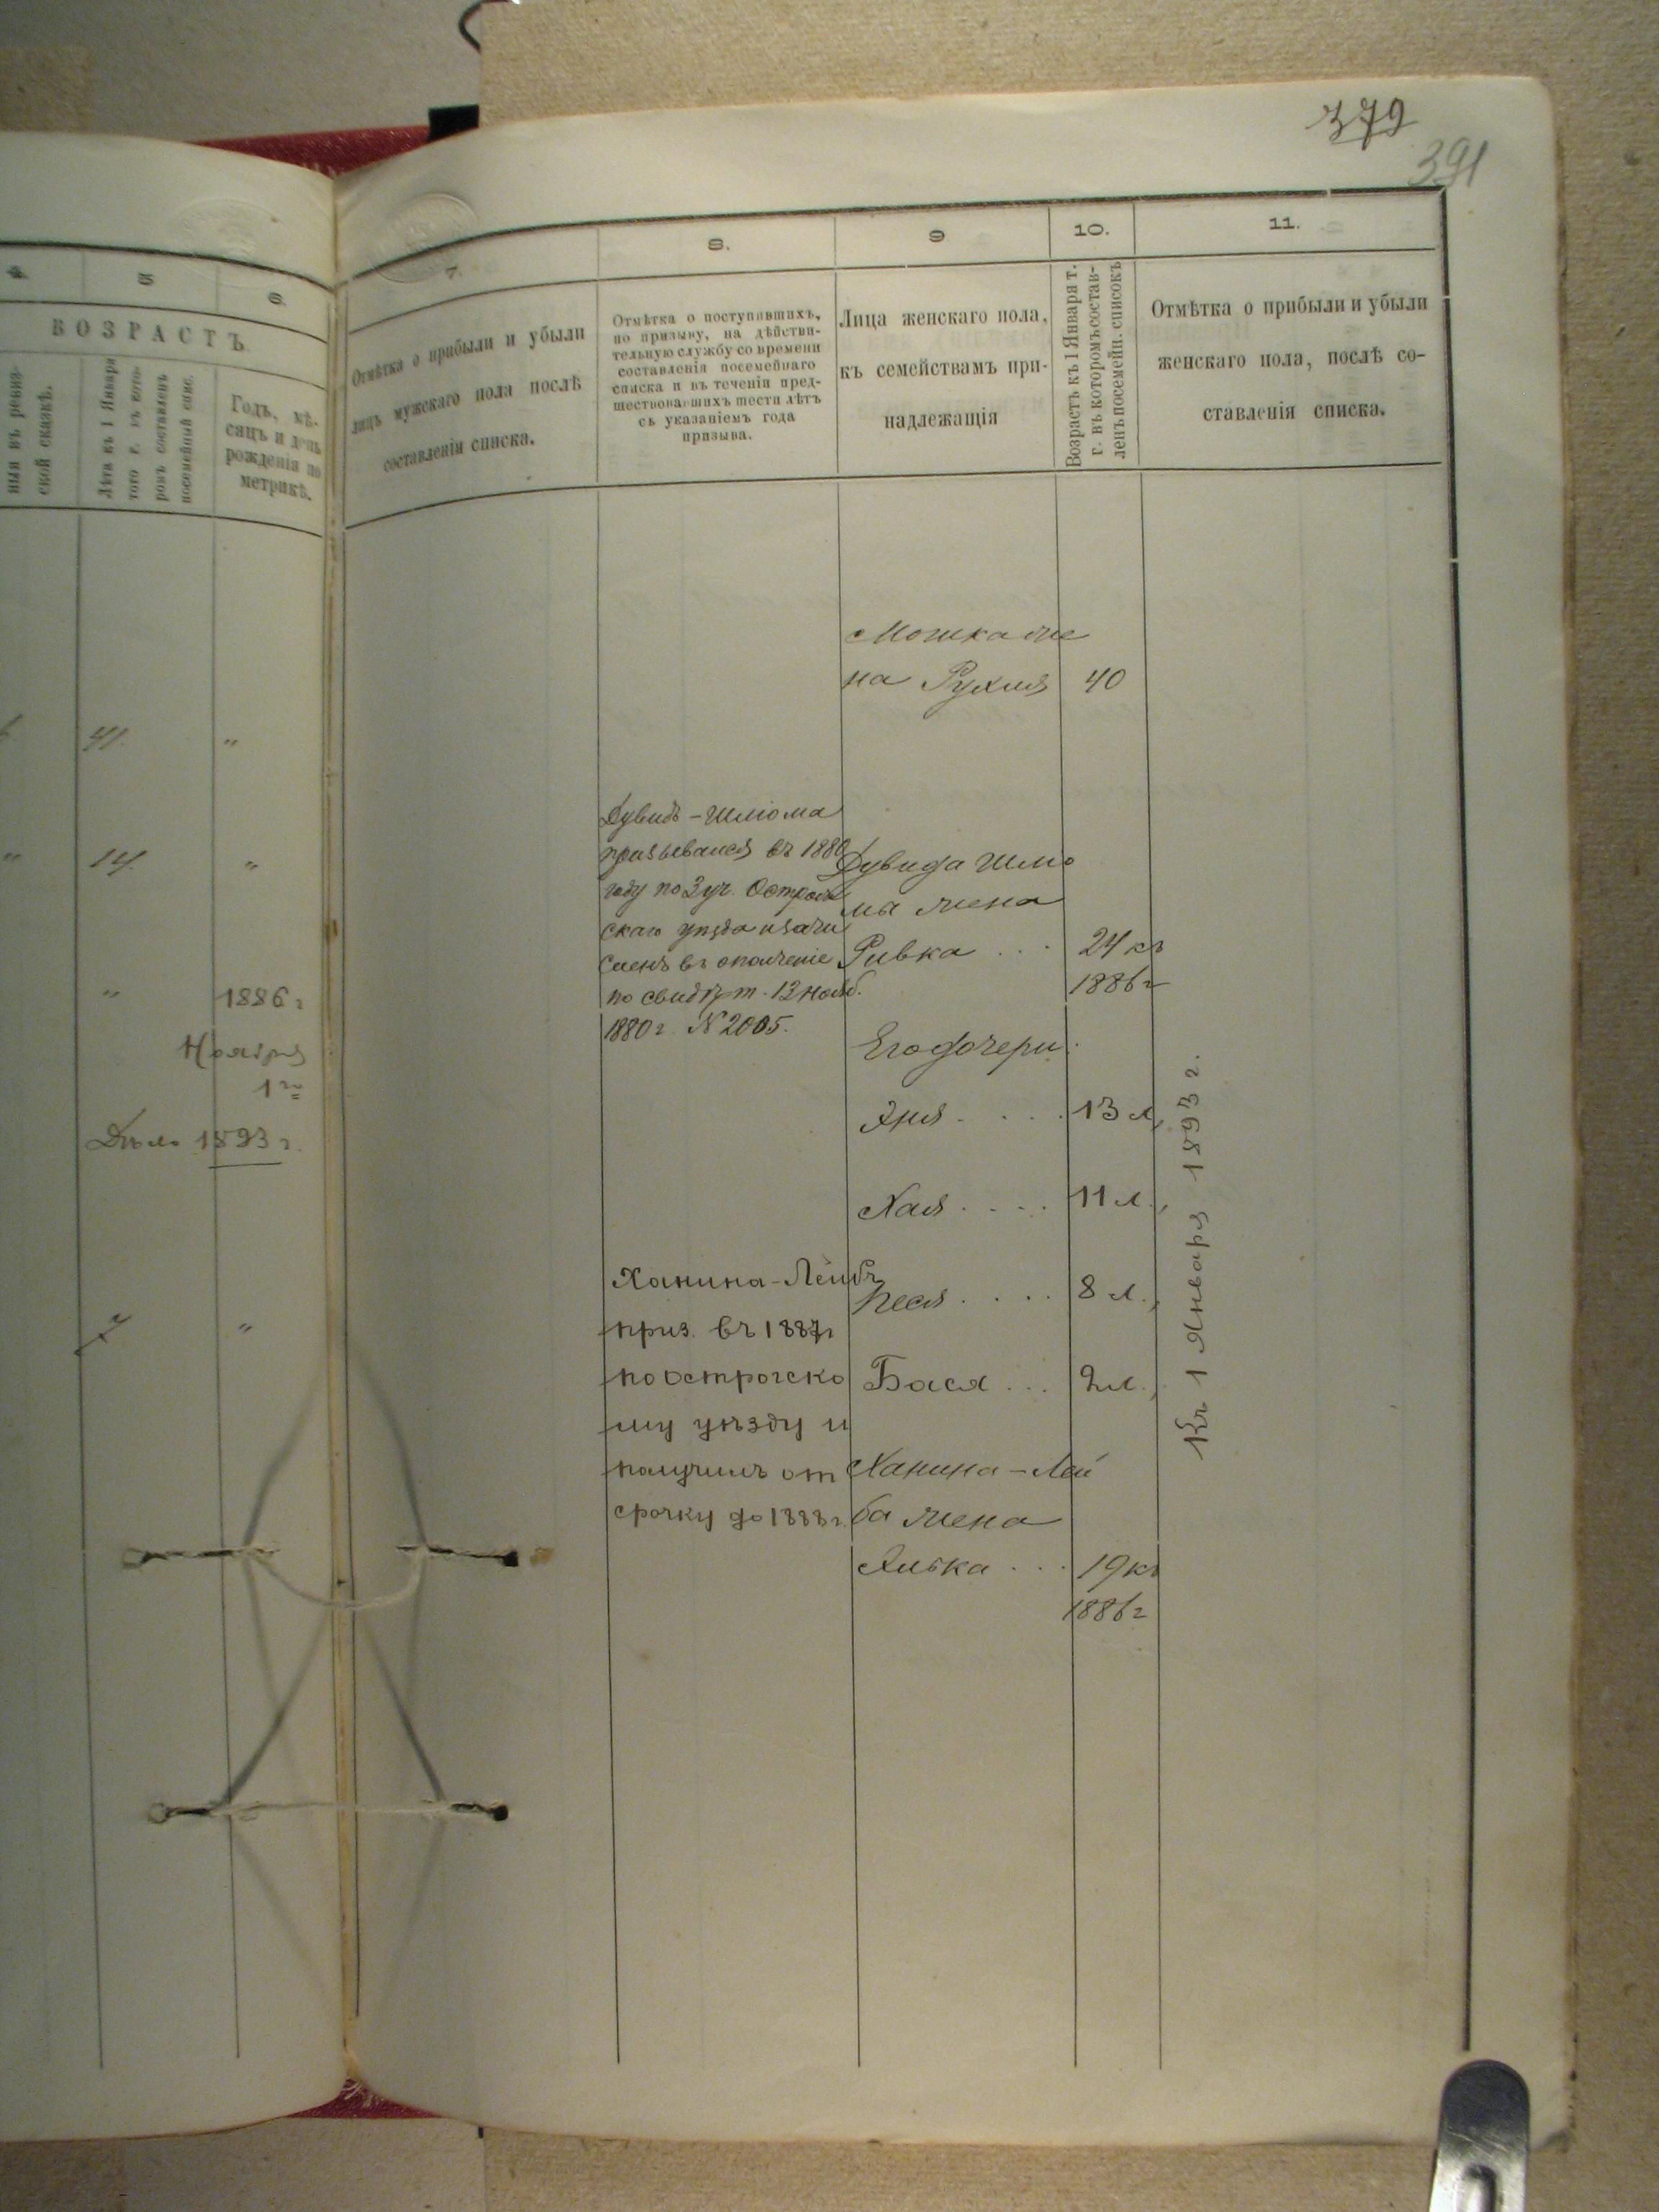 379
391
4.
5
6.
ВОЗРАСТЪ
ской сказкѣ.
Лѣта къ 1 Января
того г. въ кото-
ромъ составленъ
посемейный спис.
Годъ, мѣ-
сяцъ и день
рожденія по
метрикѣ.
41
"
"
14.
"
"
1886 г
Ноября
1го
Дѣло 1893 г.
"
7.
8.
9
10.
11.
Отмѣтка о прибыли и убыли
лицъ мужскаго пола послѣ
составленія списка.
Отмѣтка о поступившихъ,
по призыву, на дѣйстви-
тельную службу со времени
составленія посемейнаго
списка и въ теченіи пред-
шествовавшихъ шести лѣтъ
съ указаніемъ года
призыва.
Лица женскаго пола,
къ семействамъ при-
надлежащія
Возрастъ къ 1 Января т.
г. въ которомъ состав-
ленъ посемейн. списокъ
Отмѣтка о прибыли и убыли
женскаго пола, послѣ со-
ставленія списка.
Мошка же
на Рухля 40
Дувидъ-Шлиома
призывался въ 1880
году по 3 уч. Острож
скаго уѣзда и зачи
сленъ въ ополченіе
по свидѣт. 13 нояб.
1880 г. № 2005.
Дувида Шлио
мы жена
Ривка ... 24 къ
1886 г
Его дочери
13 л,
Хая .... 11 л.,
Песя .... 8 л.,
Бася ... 2 л.,
Къ 1 Января 1893 г.
Ханина-Лейбъ
приз. въ 1887 г
по острогско
му уѣзду и
получилъ от
срочку до 1888 г.
Ханина-Лей
ба жена
... 19 къ
1886 г